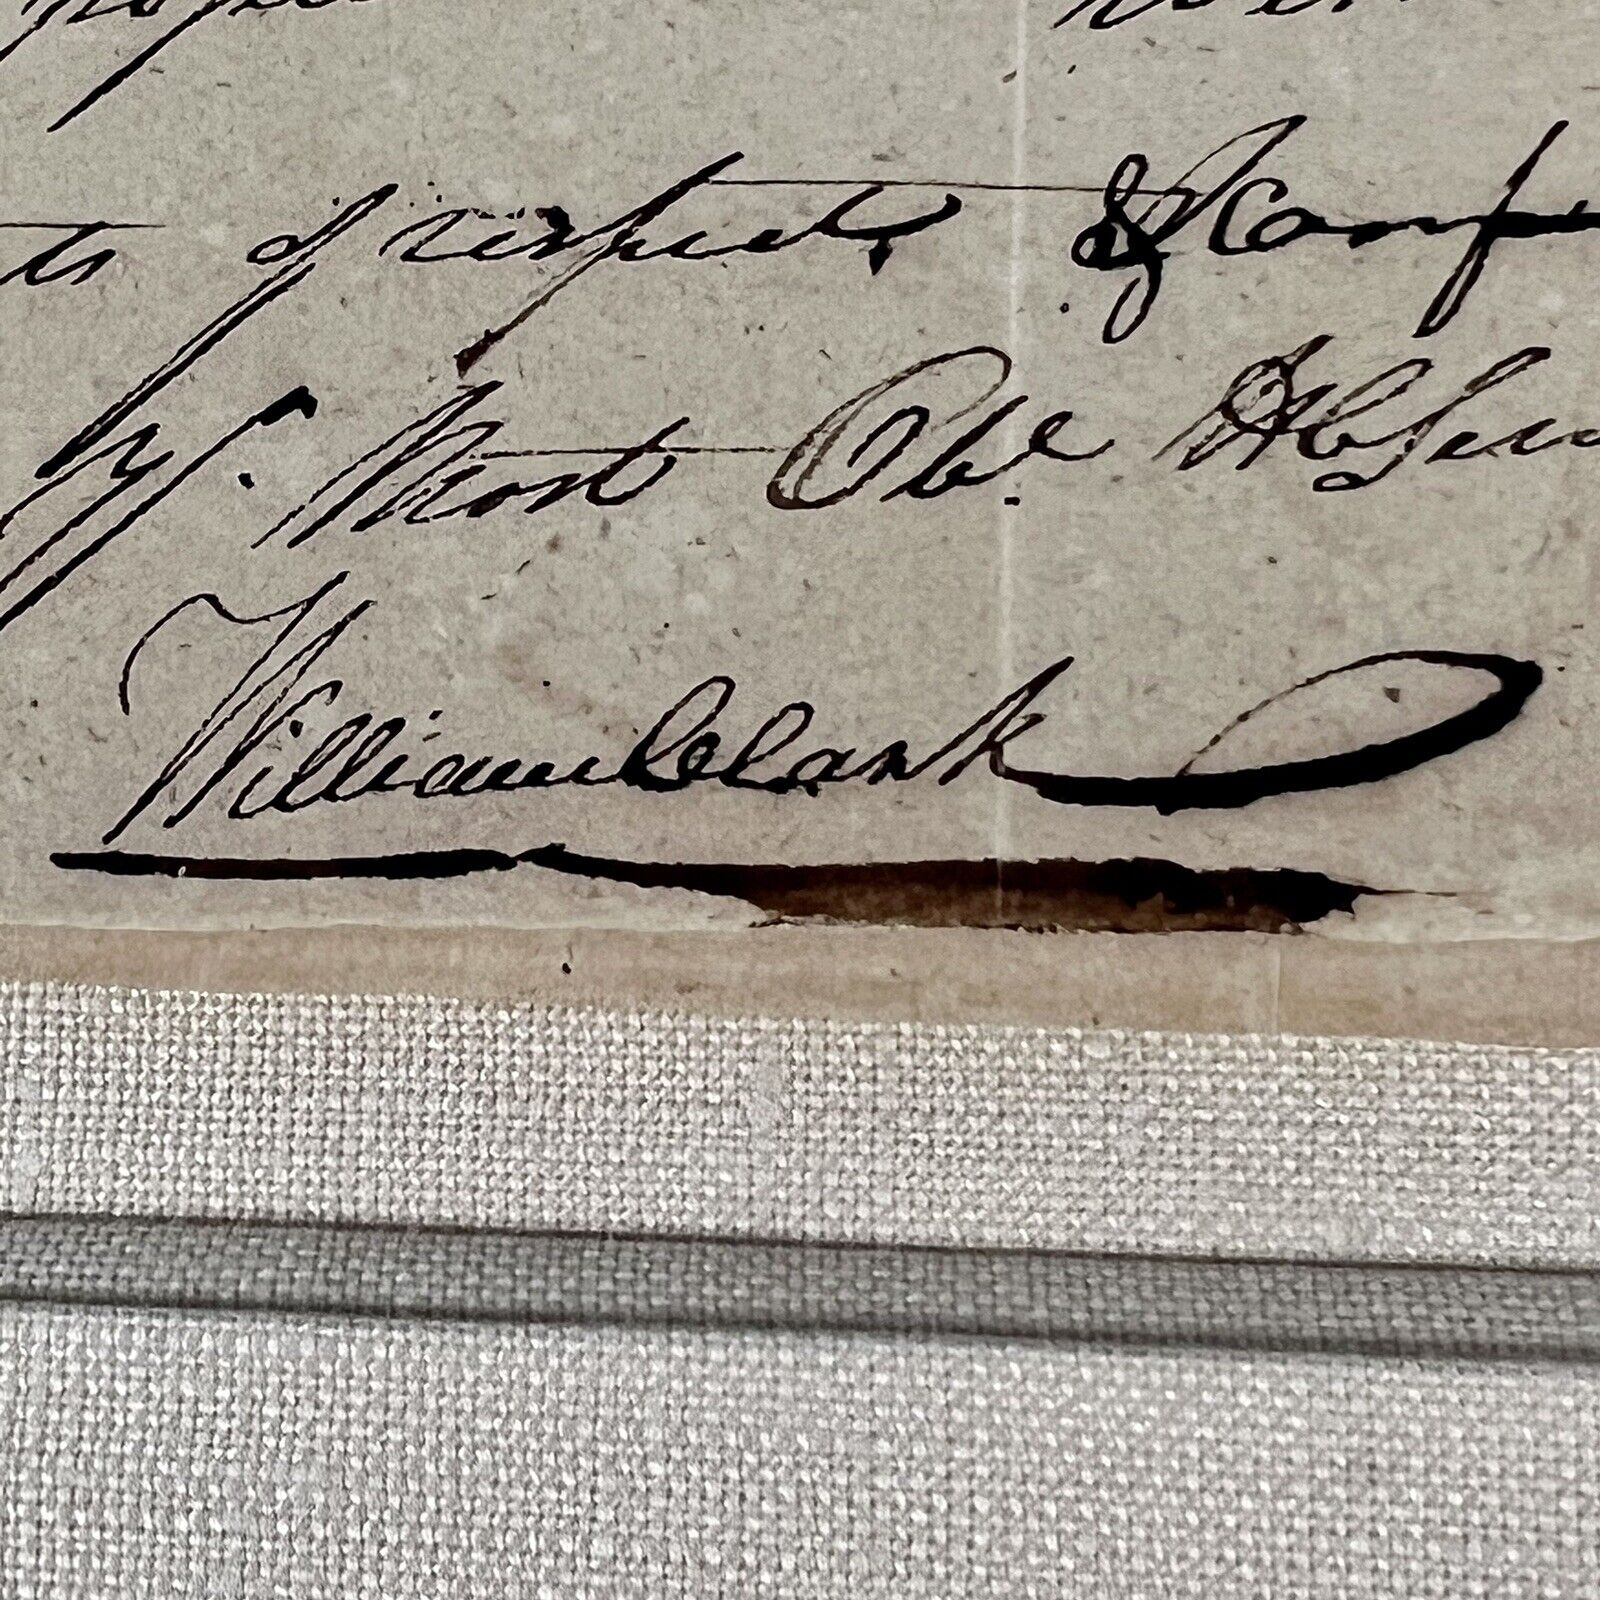 ts of respect, & Conf
Yr. Most Obe. H Ser
William Clark